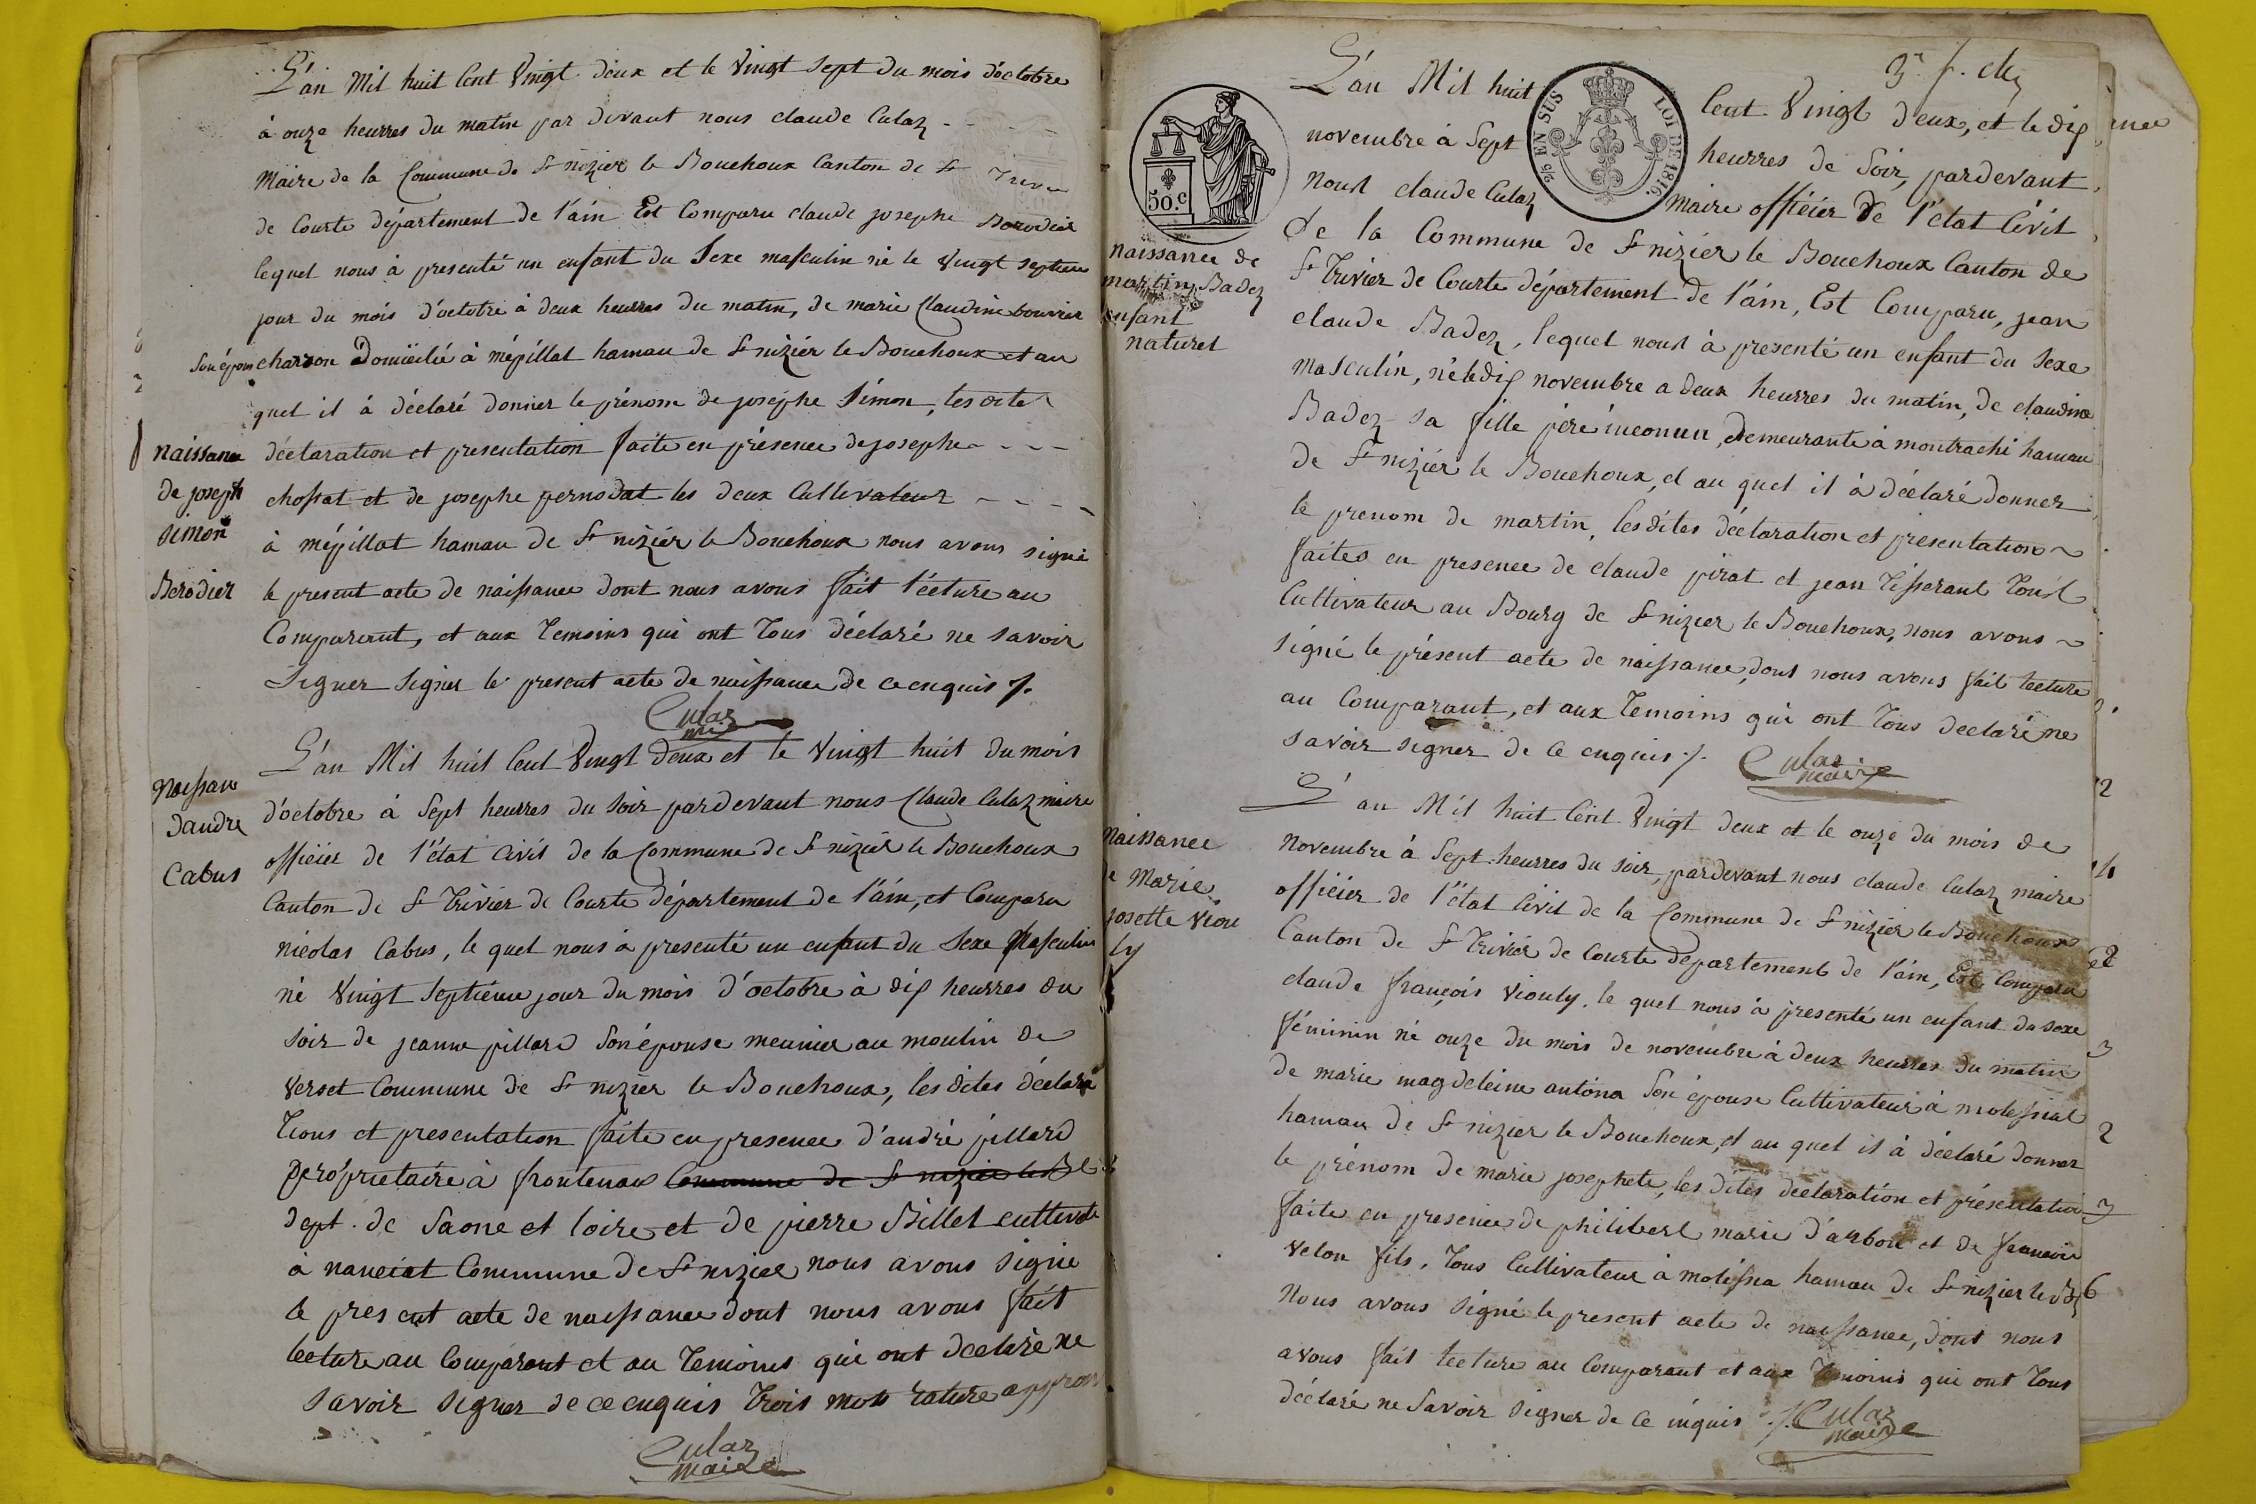 L'an Mil huit Cent Vingt deux et le Vingt Sept du mois d'octobre
à onze heurres du matin par devant nous claude Culaz
Maire de la Commune de St nizier le Bouchoux Canton de St Trivier
de Courte département de l'ain Est Comparu claude josephe Berodier
lequel nous à presenté un enfant du Sexe masculin né le Vingt Septieme
jour du mois d'octobre à deux heurres du matin, de marie Claudine bouvier
Son épouse charron Domicilié à mépillat hamau de St nizier le Bouchoux et au
quel il à déclaré donner le prénom de josephe Simon, les dite
Naissance
de joseph
Simon
Berodier
déclaration et presentation faite en présence de josephe
chossat et de josephe pernodat les deux Cultivateur
à mépillat hamau de St nizier le Bouchoux nous avons signé
le present acte de naissance dont nous avons fait l'écture au
Comparant, et aux Temoins qui ont Tous déclaré ne savoir
Signer signer le present acte de naissance de ce enquis /.
Culaz
Naissan
dandre
Cabus
L'an Mil huit Cent Vingt Deux et le Vingt huit du mois
d'octobre à Sept heurres du Soir pardevant nous Claude Culaz maire
officier de l'état Civil de la Commune de St nizier le Bouchoux
Canton de St Trivier de Courte département de l'ain, et Comparu
nicolas Cabus, le quel nous à presenté un enfant du Sexe Masculin
né Vingt Septieme jour du mois d'octobre à dix heurres du
Soir de jeanne pillard Son épouse meunier au moulin de
Verset Commune de St nizier le Bouchoux, les dites déclara
Tions et presentation faite en presence d'andré pillard
Propriétaire à frontenau Commune de St nizier le B
dept. de Saone et loire et de pierre Billet cultivate
à nanciat Commune de St nizier nous avons Signé
le present acte de naissance dont nous avons fait
lecture au Comparant et au Temoins qui ont declaré ne
Savoir Signer de ce enquis Trois mots rature approu
Culaz
maire
3e f. ch
50.c
25c EN SUS LOI DE 1816.
Naissance de
martin Badez
enfant
naturel
L'an Mil huit Cent Vingt Deux, et le dix
novembre à Sept heurres de Soir, pardevant
Nous claude Culaz maire officier de l'état Civil
de la Commune de St nizier le Bouchoux Canton de
St Trivier de Courte département de l'ain, Est Comparu, jean
claude Badez, lequel nous à presenté un enfant du Sexe
Masculin, né le dix novembre a deux heurres du matin, de claudine
Badez sa fille père inconnu, demeurante à montrachi hamau
de St nizier le Bouchoux, et au quel il à déclaré donner
le prenom de martin, les dites déclaration et présentation
faites en presence de claude pirat et jean Tisserant Tous
Cultivateur au Bourg de St nizier le Bouchoux, nous avons
signé le présent acte de naissance, dont nous avons fait lecture
au Comparant, et aux Temoins qui ont Tous declaré ne
savoir signer de ce enquis /.
Culaz
maire
Naissance
de Marie
josette Viou
ly
L'an Mil huit Cent Vingt deux et le onze du mois de
Novembre à Sept heurres du soir, pardevant nous claude Culaz maire
officier de l'état Civil de la Commune de St nizier le Bouchoux
Canton de St Trivier de Courte département de l'ain, Est Comparu
claude françois Viouly, le quel nous à presenté un enfant du Sexe
féminin né onze du mois de novembre à deux heurres du matin
de marie magdeleine antona Son épouse Cultivateur à molessiat
hamau de St nizier le Bouchoux, et au quel il à déclaré donner
le prénom de marie josephete, les dites déclaration et présentation
faite en presence de philibert marie d'arbon et de francois
Velon fils, Tous Cultivateur à molissia hamau de St nizier le B
Nous avons Signé le present acte de naissance, dont nous
avons fait lecture au Comparant et aux Temoins qui ont Tous
déclaré ne Savoir Signer de ce inquis /.
Culaz
maire